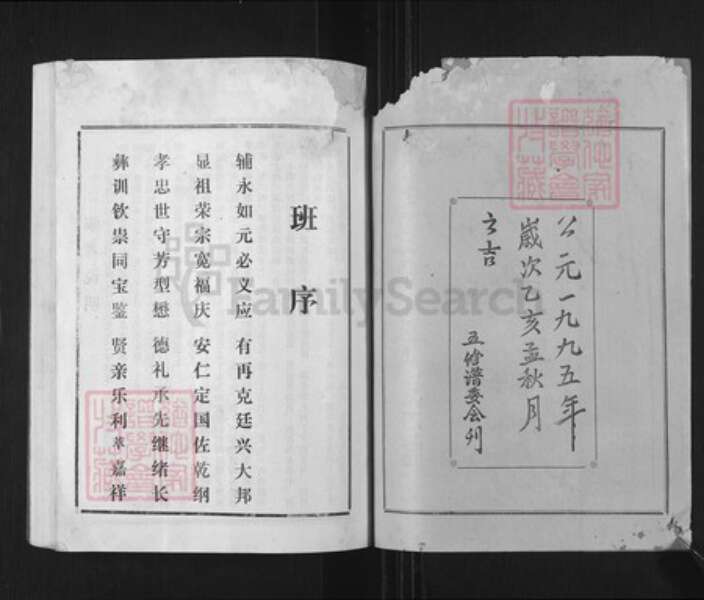 公元一九九五年
歲次乙亥孟秋月
之吉
五修谱委会刊
班序
辅永如元必义应 有再克廷兴大邦
显祖荣宗宽福庆 安仁定国佐乾纲
孝忠世守芳型懋 德礼承先继绪长
彝训钦崇同宝鉴 贤亲乐利萃嘉祥
FamilySearch